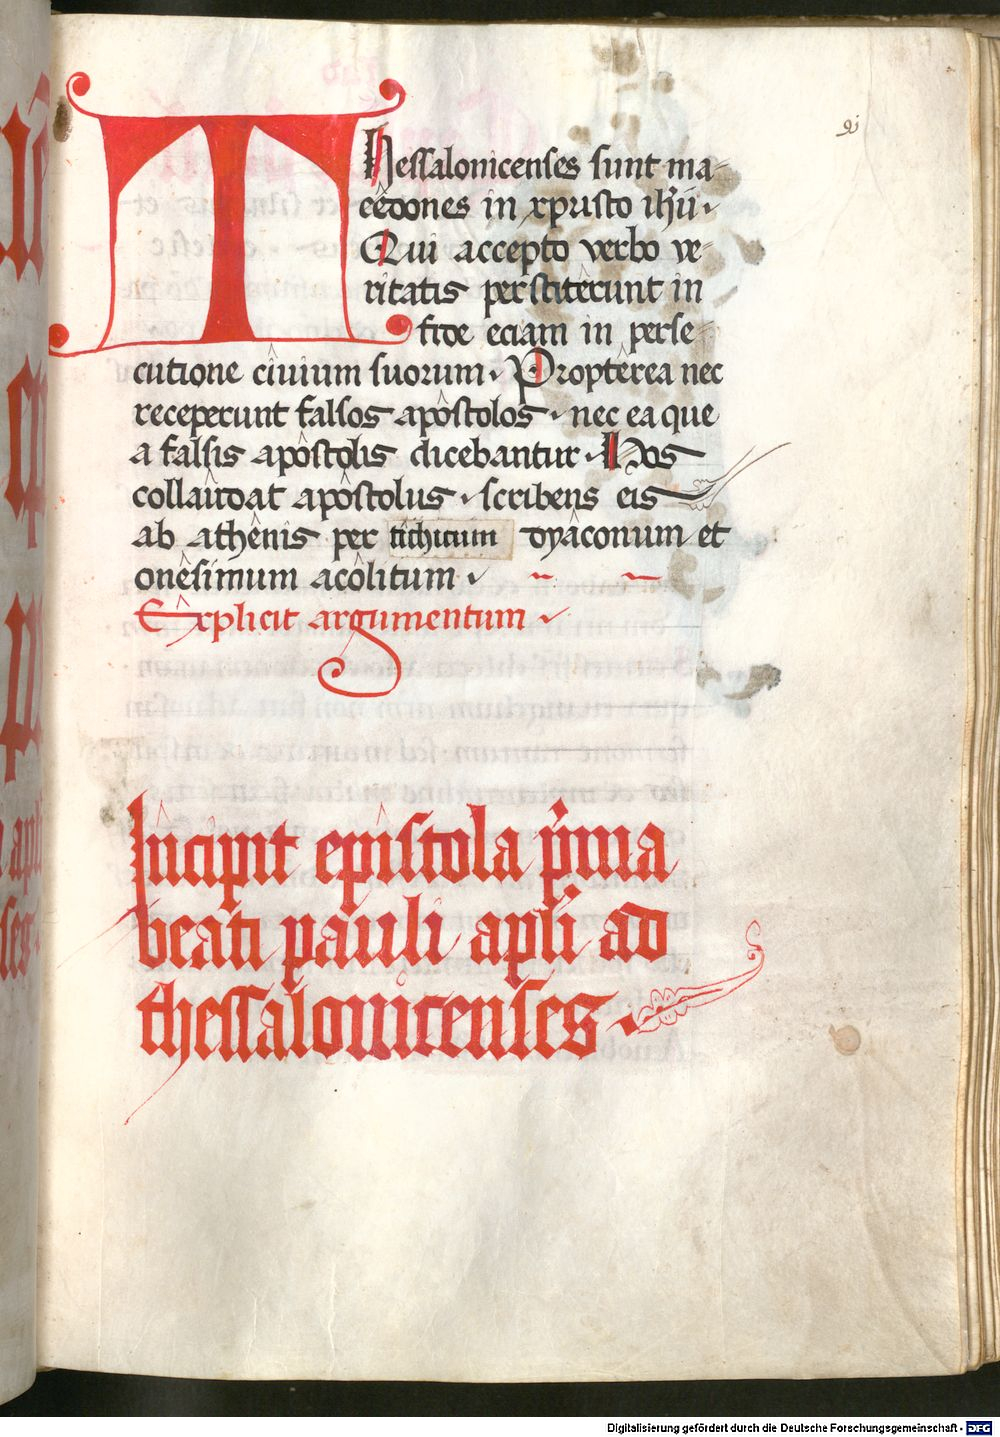 91
THessalonicenses sunt ma-
cêdones in xpristo ihũ.
Qui accepto verbo ve-
ritatis perstitêrunt in
fide eciam in perse-
cutione cîvium suorum. Proptêrea nec
receperunt falsos apôstolos. nec ea que
a falsis apôstolis dicebantur. Hos
collaûdat apôstolus. scribens eis
ab athênis per titħicum dyâconum et
onêsimum acôlitum.
Explicit argumentum
Incipit epistola p̃ima
beati pauli apłi ad
thessalonicenses.
Digitalisierung gefördert durch die Deutsche Forschungsgemeinschaft - DFG